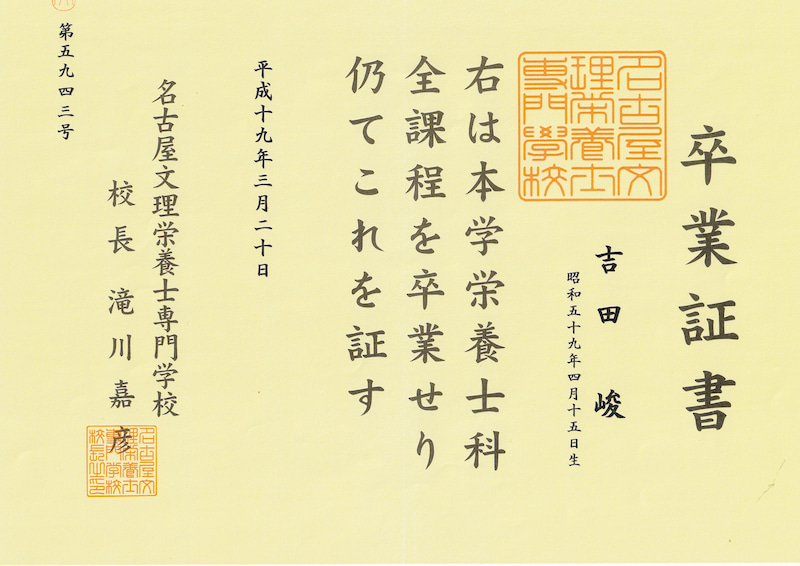 卒業証書
名古屋文
理栄養士
専門學校
吉田 峻
昭和五十九年四月十五日生
右は本学栄養士科
全課程を卒業せり
仍てこれを証す
平成十九年三月二十日
名古屋文理栄養士専門学校
校長 滝川嘉彦
名古屋文
理栄養士
専門学校
校長之印
第五九四三号